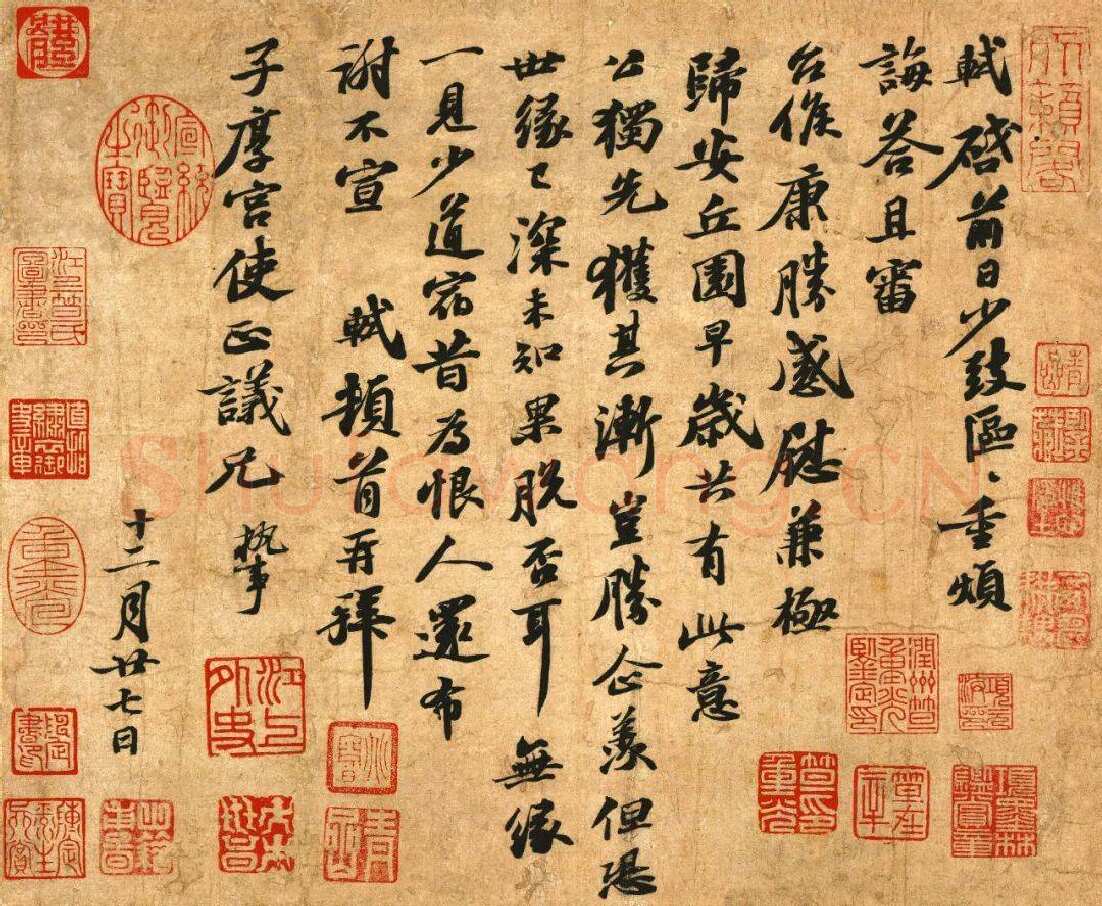 軾啓前日少致區〻重煩
誨荅且審
台候康勝感慰兼極
歸安丘園早歲共有此意
公獨先獲其漸豈勝企羨但恐
世緣已深未知果脫否耳無緣
一見少道宿昔為恨人還布
謝不宣 軾頓首再拜
子厚宮使正議兄執事
十二月廿七日
江上外史
Shufawang.CN